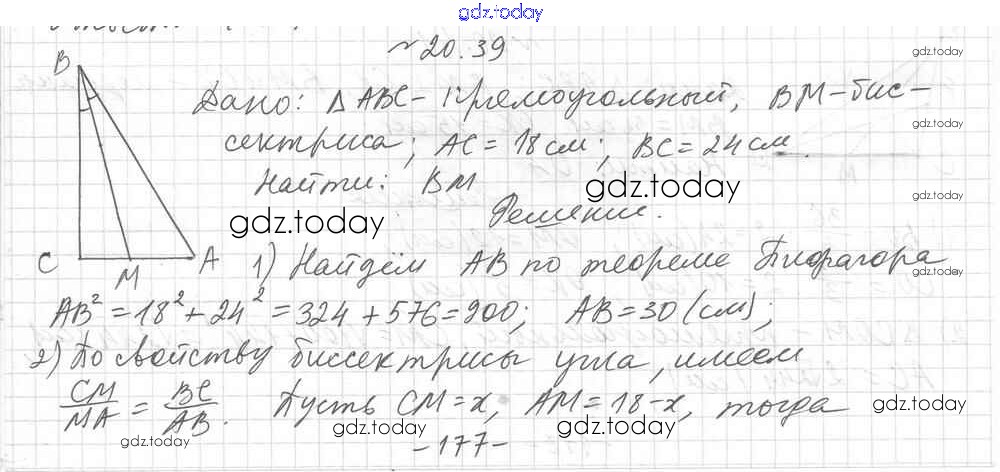 gdz.today
№ 20.39
gdz.today
B
Дано: Δ ABC - прямоугольный, BM - бис-
сектриса; AC = 18 см; BC = 24 см.
gdz.today
Найти: BM
gdz.today
gdz.today
Решение.
C M A 1) Найдём AB по теореме Пифагора
gdz.today
AB² = 18² + 24² = 324 + 576 = 900; AB = 30 (см);
2) По свойству биссектрисы угла, имеем
CM/MA = BC/AB. Пусть CM = x, AM = 18 - x, тогда
gdz.today
gdz.today gdz.today gdz.today
- 177 -